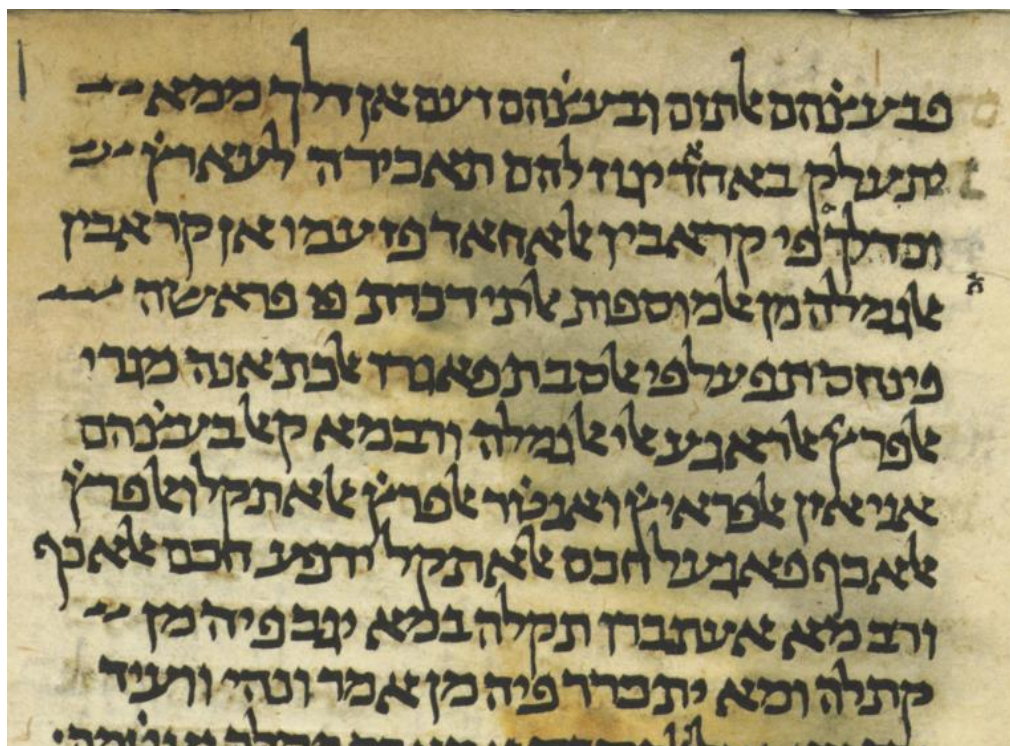 פבעצ̇הם אלתזם ובעצ̇הם זעם אן דלך ממא
יתעלק באחד יגוז להם תאכירה לעארץ̇
וכדלך פי קראבין אלאחאד פזעמו אן קראבין
אלגמלה מן אלמוספות אלתי דכרת פי פראשה
פינחס תפעל פי אלסבת פאגרו אלכתאנה מגרי
אלפרץ̇ אלראגע אלי אלגמלה ורבמא קאל בעצ̇הם
אני אזין אלפראיץ̇ ואנט̇ר אלפרץ̇ אלאתקל ואלפרץ̇
אלאכף פאגעל חכם אלאתקל ירפע חכם אלאכף
ורבמא אעתברו תקלה במא יגב פיה מן
קתלה ומא יתכרר פיה מן אמר ונהי וועיד